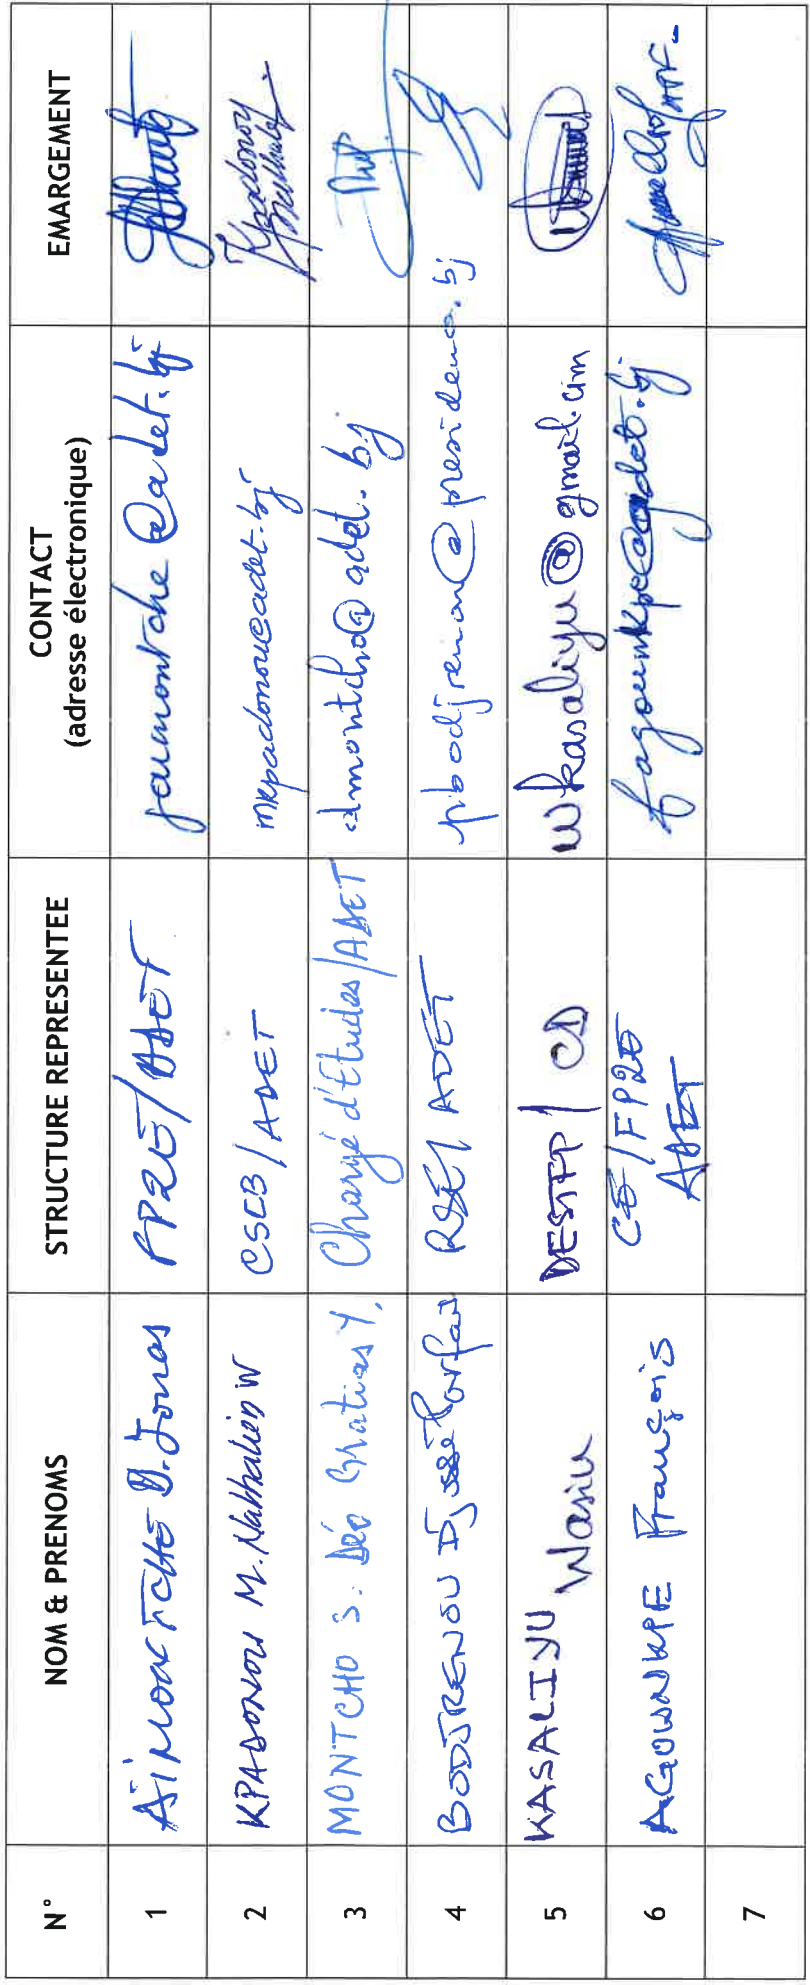 N° NOM & PRENOMS STRUCTURE REPRESENTEE CONTACT EMARGEMENT
(adresse électronique)
1 AÏMONTCHE D. Jonas FP2E/ADET
2 KPADONOU M. Nathalien W CSCB/ADET mkpadonou@adet.bj Kpadonou
3 MONTCHO S. Déo Gratias Y. Chargé d'Etudes/ADET dmontcho@adet.bj
4 BODJRENOU Djossè Parfait RSE/ADET pbodjrenou@presidence.bj
5 KASALIYU Wasiu DESTFP/CD wkasaliyu@gmail.com
6 AGOUNKPE François CE/FP2E fagounkpe@adet.bj
ADET
7